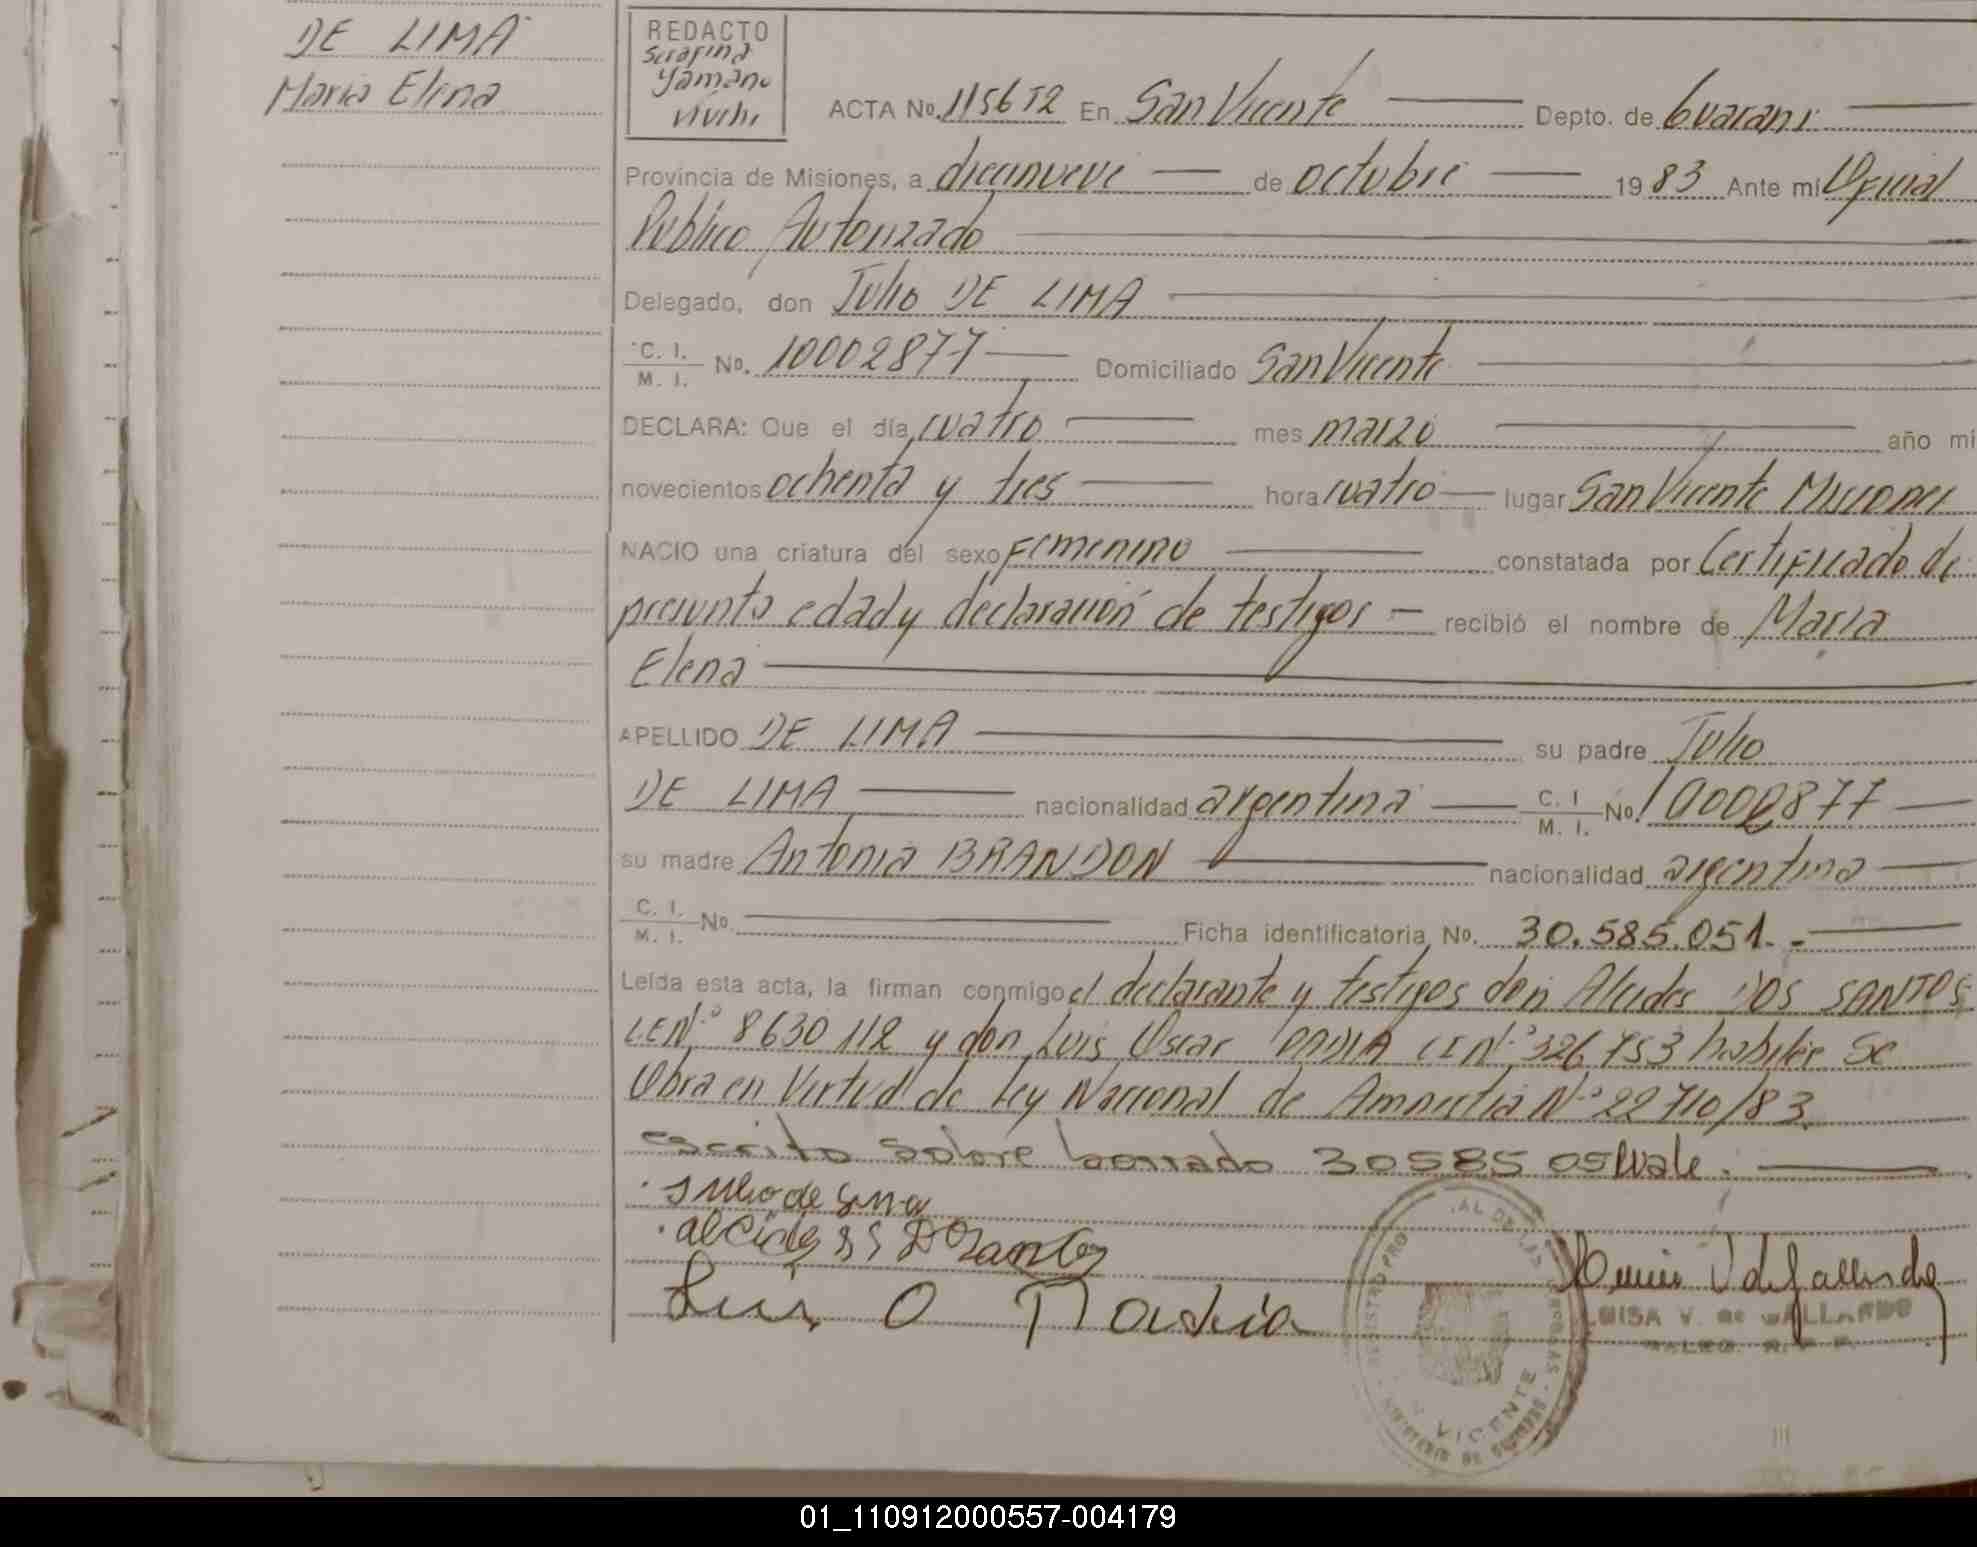 DE LIMA
Maria Elena
REDACTO
Serafina
Yamano
Vivchi
ACTA No. 115652 En San Vicente Depto. de Guarani
Provincia de Misiones, a diecinueve de octubre 1983 Ante mi Oficial
Público Autorizado
Delegado, don Julio DE LIMA
C. I. M. I. No. 10002877 Domiciliado San Vicente
DECLARA: Que el día cuatro mes marzo año mi
novecientos ochenta y tres hora cuatro lugar San Vicente Misiones
NACIO una criatura del sexo Femenino constatada por Certificado de
presunta edad y declaración de testigos recibió el nombre de Maria
Elena
APELLIDO DE LIMA su padre Julio
DE LIMA nacionalidad argentina C. I M. I. No. 10002877
su madre Antonia BRANDON nacionalidad argentina
C. I. M. I. No. Ficha identificatoria No. 30.585.051.-
Leída esta acta, la firman conmigo el declarante y testigos don Alcides DOS SANTOS
LE Nº 8630112 y don Luis Oscar CI Nº 326753 habiles Se
Obra en Virtud de Ley Nacional de Amnistia Nº 22710/83.
escrito sobre borrado 30585051 vale.
Julio de Lima
Luis O
LUISA V. de GALLARDO
VICENTE
01_110912000557-004179